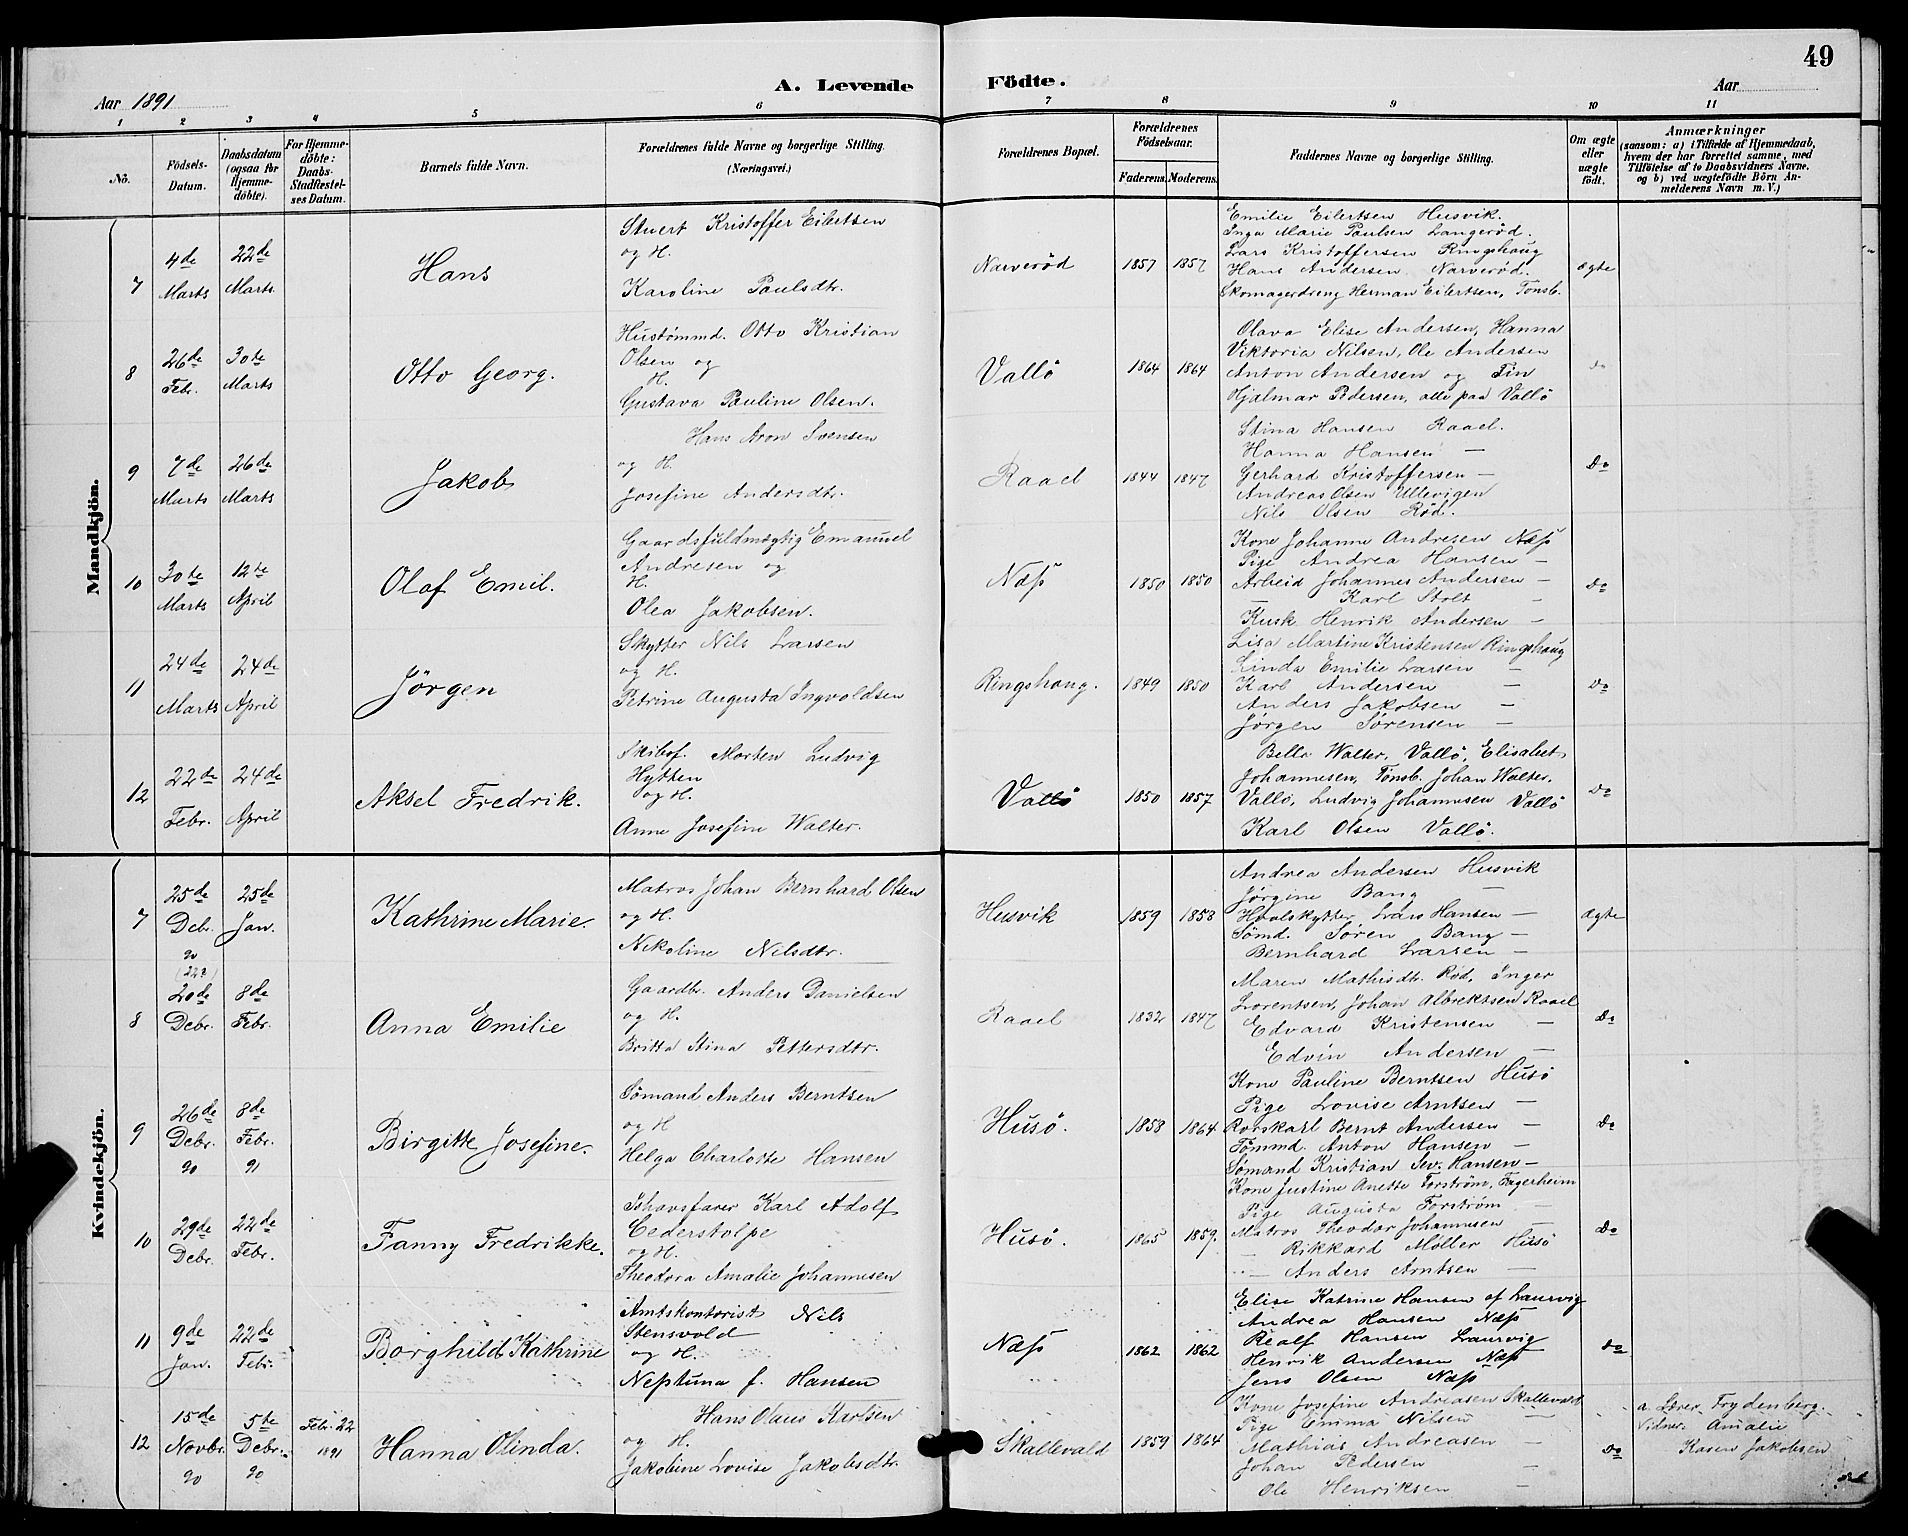 49
A. Levende Födte.
Aar 1891
Aar
1 2 3 4 5 6 7 8 9 10 11
Nö.
Födsels-Datum.
Daabsdatum (ogsaa for Hjemme-döbte).
For Hjemme-döbte: Daabs-Stadfæstel-ses Datum.
Barnets fulde Navn.
Forældrenes fulde Navne og borgerlige Stilling. (Næringsvei.)
Forældrenes Bopæl.
Forældrenes Födselsaar.
Faderens. Moderens.
Faddernes Navne og borgerlige Stilling.
Om ægte eller uægte födt.
Anmærkninger
(saasom: a) i Tilfælde af Hjemmedaab, hvem der har forrettet samme, med Tilföielse af to Daabsvidners Navne, og b) ved uægtefödte Börn An-melderens Navn m. V.)
Mandkjön.
7
4de Marts
22de Marts
Hans
Stuert Kristoffer Eilertsen
og H.
Karoline Paulsdtr.
Narverød
1857 1857
Emilie Eilertsen Husvik.
Inga Marie Paulsen Langerød.
Lars Kristoffersen Ringshaug
Hans Andersen Narverød.
Skomagerdreng Herman Eilertsen, Tønsb.
ægte
8
26de Febr.
30te Marts
Otto Georg.
Hustømmd. Otto Kristian
Olsen og
H.
Gustava Pauline Olsen.
Vallö
1864 1864
Olava Elise Andersen, Hanna
Viktoria Nilsen, Ole Andersen
Anton Andersen og Fin
Hjalmar Pedersen, alle paa Vallö
do
9
7de Marts
26de Marts
Jakob
Hans Aron Svensen
og H.
Josefine Andersdtr.
Raael
1844 1847
Stina Hansen Raael.
Hanna Hansen —
Gerhard Kristoffersen —
Andreas Olsen Ullevigen
Nils Olsen Rød.
Do
10
30te Marts
12te April
Olaf Emil.
Gaardsfuldmægtig Emanuel
Andresen og
H.
Olea Jakobsen.
Næss
1850 1850
Kone Johanne Andresen Næss
Pige Andrea Hansen —
Arbeid Johannes Andersen —
— Karl Stolt —
Kusk Henrik Andersen —
Do
11
24de Marts
24de April
Jörgen
Skytter Nils Larsen
og H.
Petrine Augusta Ingvoldsen
Ringshaug.
1849 1850
Lisa Martine Kristensen Ringshaug
Linda Emilie Larsen —
Karl Andersen —
Anders Jakobsen —
Jörgen Sörensen —
Do
12
22de Febr.
24de April
Aksel Fredrik.
Skibsf. Morten Ludvig
Hytten
og H.
Anne Josefine Walter.
Vallö
1850 1857
Bella Walter, Vallö, Elisabet
Johannesen, Tønsb. Johan Walter.
Vallö, Ludvig Johannesen Vallö
Karl Olsen Vallö.
Do
Kvindekjön.
7
25de Debr. 90
25de Jan.
Kathrine Marie.
Matros Johan Bernhard Olsen
og H.
Nikoline Nilsdtr.
Husvik
1859 1858
Andrea Andersen Husvik
Jørgine Bang —
Hvalskytter Lars Hansen —
Sömd. Sören Bang —
Bernhard Larsen —
Ægte
8
(22?)
20de Debr.
8de Febr.
Anna Emilie
Gaardbr. Anders Danielsen
og H.
Britta Stina Pettersdtr.
Raael
1832 1847
Maren Mathisdtr. Rød, Inger
Lorentsen, Johan Albrektsen Raael
Edvard Kristensen —
Edvin Andersen —
Do
9
26de Debr. 90
8de Febr. 91
Birgitte Josefine.
Sömand Anders Berntsen
og H
Helga Charlotte Hansen
Husö.
1858 1864
Kone Pauline Berntsen Husö
Pige Lovise Arntsen —
Rorskarl Bernt Andersen —
Tömmd. Anton Hansen —
Sömand Kristian Sev. Hansen —
Do
10
29de Debr.
22de Febr.
Fanny Fredrikke.
Ishavsfarer Karl Adolf
Cederstolpe
og H.
Theodora Amalie Johannesen
Husö.
1865 1859.
Kone Justine Anette Forström, Fagerheim
Pige Augusta Forström —
Matros Theodor Johannesen —
— Rikkard Möller Husö
— Anders Arntsen —
Do
11
9de Jan.
22de Febr.
Borghild Kathrine
Amtskontorist Nils
Stensvold
og H.
Neptuna f. Hansen
Næss
1862 1862
Elise Katrine Hansen af Laurvig
Andrea Hansen Næss
Realf Hansen Laurvig
Henrik Andersen Næss
Jens Olsen Næss
Do
12
15de Novbr. 90
5te Debr. 90
Febr. 22 1891
Hanna Olinda.
Hans Olaus Karlsen
og H.
Jakobine Lovise Jakobsdtr.
Skallevald
1859 1864
Kone Josefine Andreasen Skallevald
Pige Emma Nilsen —
Mathias Andreasen —
Johan Pedersen —
Ole Henriksen —
Do
a. Lærer Frydenberg.
Vidner. Amalie
Karen Jakobsen